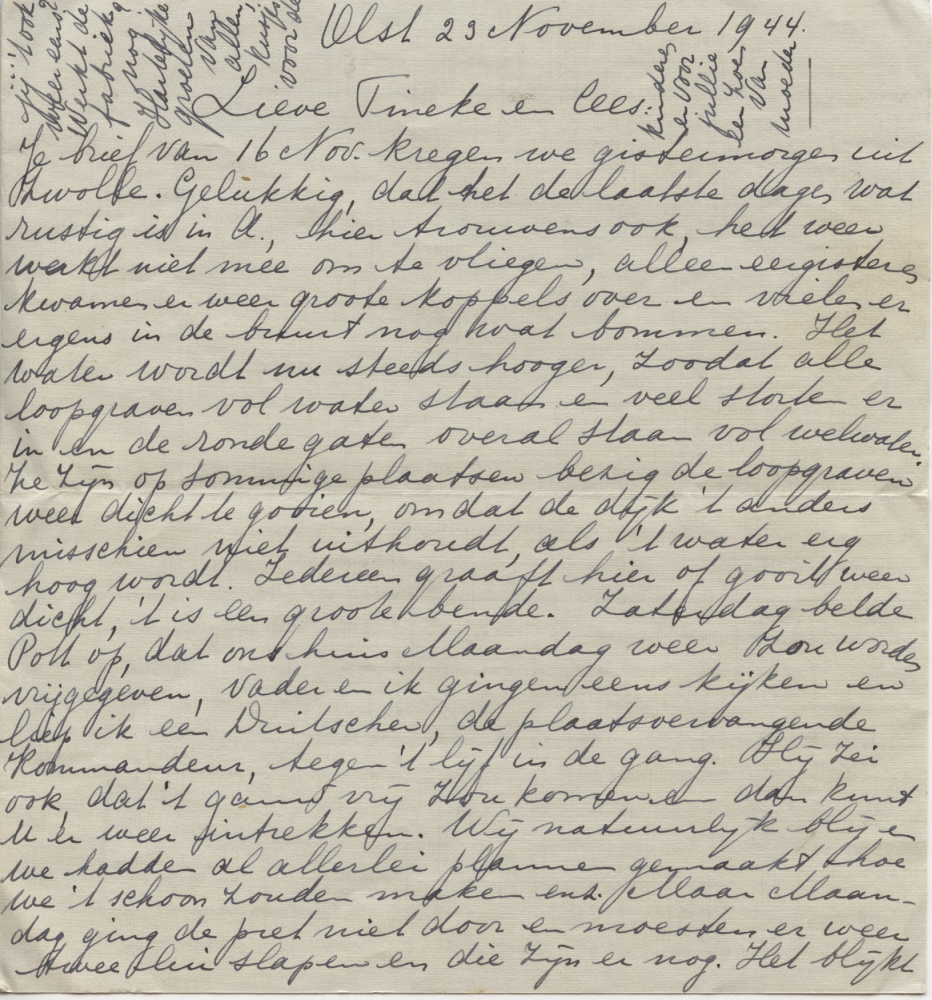 Olst 23 November 1944.
Lieve Tineke en Cees:
Je brief van 16 Nov. kregen we gistermorgen uit
Zwolle. Gelukkig, dat het de laatste dagen wat
rustig is in A., hier trouwens ook, het weer
werkt niet mee om te vliegen, alleen eergisteren
kwamen er weer groote koppels over en vielen er
ergens in de buurt nog wat bommen. Het
water wordt nu steeds hooger, zoodat alle
loopgraven vol water staan en veel storten er
in en de ronde gaten overal staan vol welwater.
Ze zijn op sommige plaatsen bezig de loopgraven
weer dicht te gooien, omdat de dijk 't anders
misschien niet uithoudt, als 't water erg
hoog wordt. Iedereen graaft hier of gooit weer
dicht, 't is een groote bende. Zaterdag belde
Pott op, dat ons huis Maandag weer zou worden
vrijgegeven, Vader en ik gingen eens kijken en
liep ik een Duitscher, de plaatsvervangende
Kommandeur, tegen 't lijf in de gang. Hij zei
ook, dat 't ganz vrij zou komen en dan kunt
U er weer intrekken. Wij natuurlijk blij en
we hadden al allerlei plannen gemaakt, hoe
we 't schoon zouden maken enz. Maar Maan-
dag ging de pret niet door en moesten er weer
twee lui slapen en die zijn er nog. Het blijkt
jij ook
weer eens?
Werkt de
fabriek?
Zoo nog
Hartelijke
groeten
van
allen,
kusjes
voor de
kinderen
en voor
jullie
een zoen
van
Moeder